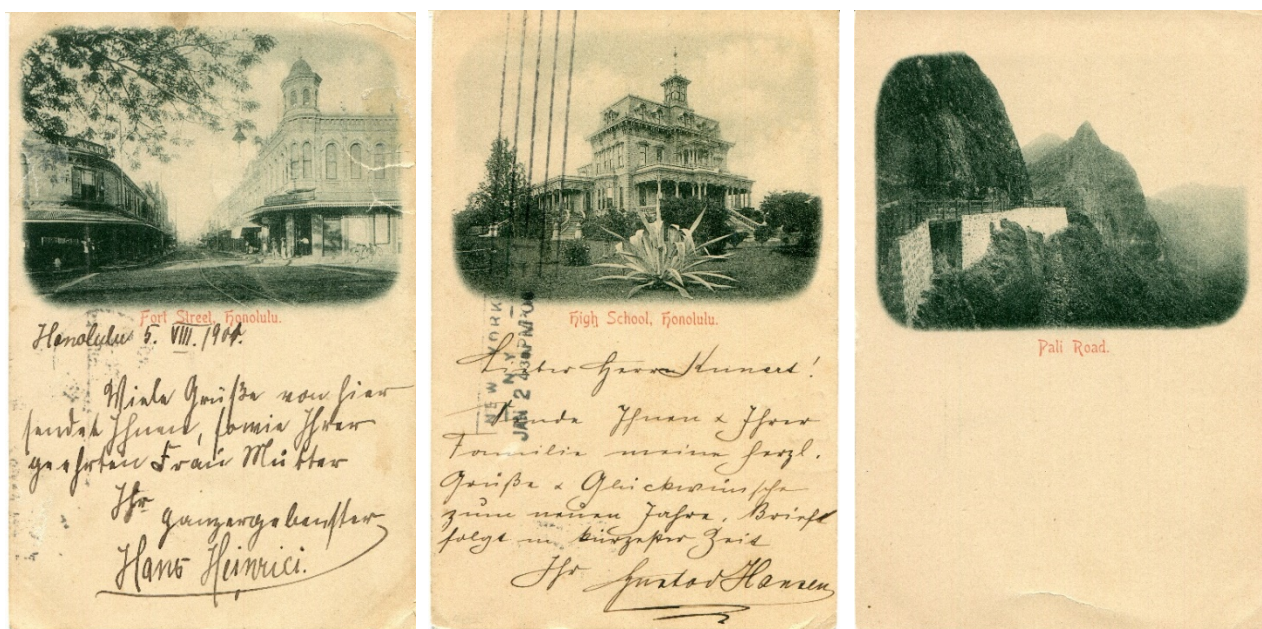 Fort Street, Honolulu.
Honolulu 5. VIII. 1901.
Viele Grüße von hier
sendet Ihnen, sowie Ihrer
geehrten Frau Mutter
Ihr
ganzergebenster
Hans Heinrici.
High School, Honolulu.
NEW YORK
N.Y.
JAN 2
Lieber Herr Kunert!
Sende Ihnen & Ihrer
Familie meine herzl.
Grüße & Glückwünsche
zum neuen Jahre. Brief
folgt in kürzester Zeit
Ihr Gustav Hansen
Pali Road.